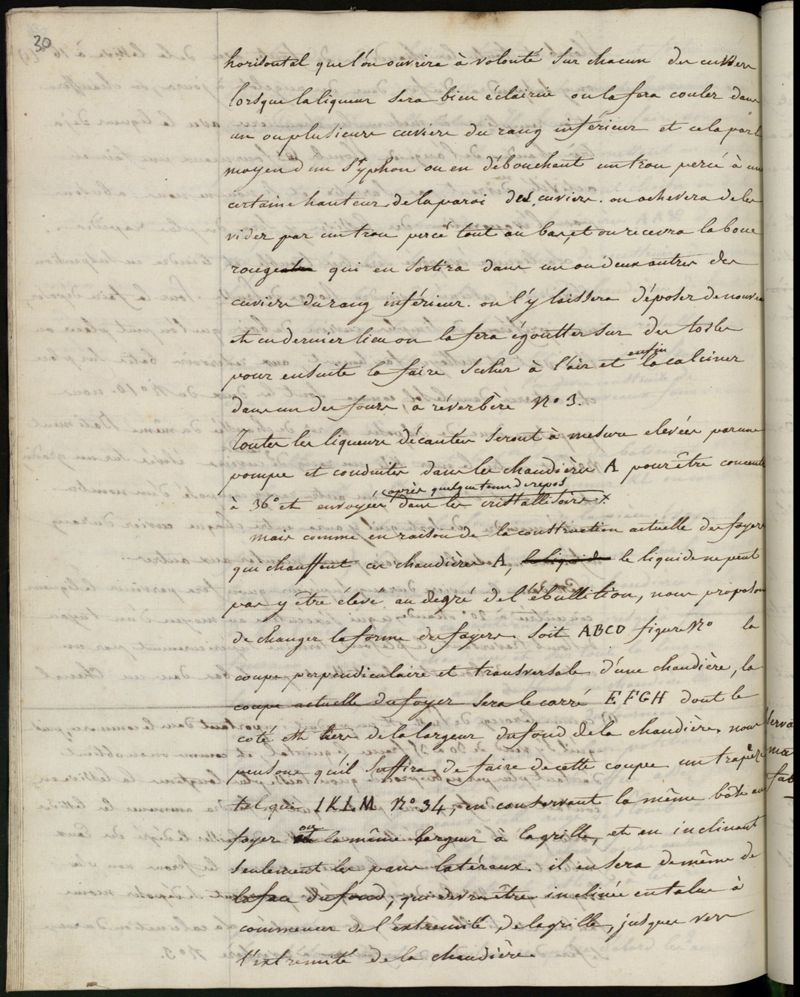 30
horisontal que l'on ouvrira à volonté sur chacun des cuviers
lorsque la liqueur sera bien éclaircie on la fera couler dans
un ou plusieurs cuviers du rang inférieur et cela par le
moyen d'un Syphon ou en débouchant un trou percé à une
certaine hauteur de la paroi des cuviers. on achevera de les
vider par un trou percé tout au bas, et on recevra la boue
rouge qui en sortira dans un ou deux autres des
cuviers du rang inférieur. on l'y laissera déposer de nouveau
et en dernier lieu on la fera égoutter sur des toiles
pour ensuite la faire sécher à l'air et enfin la calciner
dans un des fours à réverbère No 3.
Toutes les liqueurs décantées seront à mesure elevées par une
pompe et conduites dans les chaudières A pour être concentrées
à 36° et envoyées après quelque tems de repos dans les cristallisoirs
mais comme en raison de la construction actuelle des foyers
qui chauffent ces chaudières A, le liquide le liquide ne peut
pas y être élevé au degré de l'ébullition, nous proposons
de changer la forme des foyers soit ABCD figure No la
coupe perpendiculaire et transversale d'une chaudière, la
coupe actuelle du foyer sera le carré EFGH dont le
coté est tiers de la largeur du fond de la chaudière. nous
pensons qu'il suffira de faire de cette coupe un trapèze
tel que IKLM No 34, en conservant la même au
foyer ou la même largeur à la grille, et en inclinant
seulement les pans latéraux. il en sera de même de
la face du fond, qui devra être inclinée en talus à
commencer de l'extremité de la grille, jusques vers
l'extremité de la chaudière